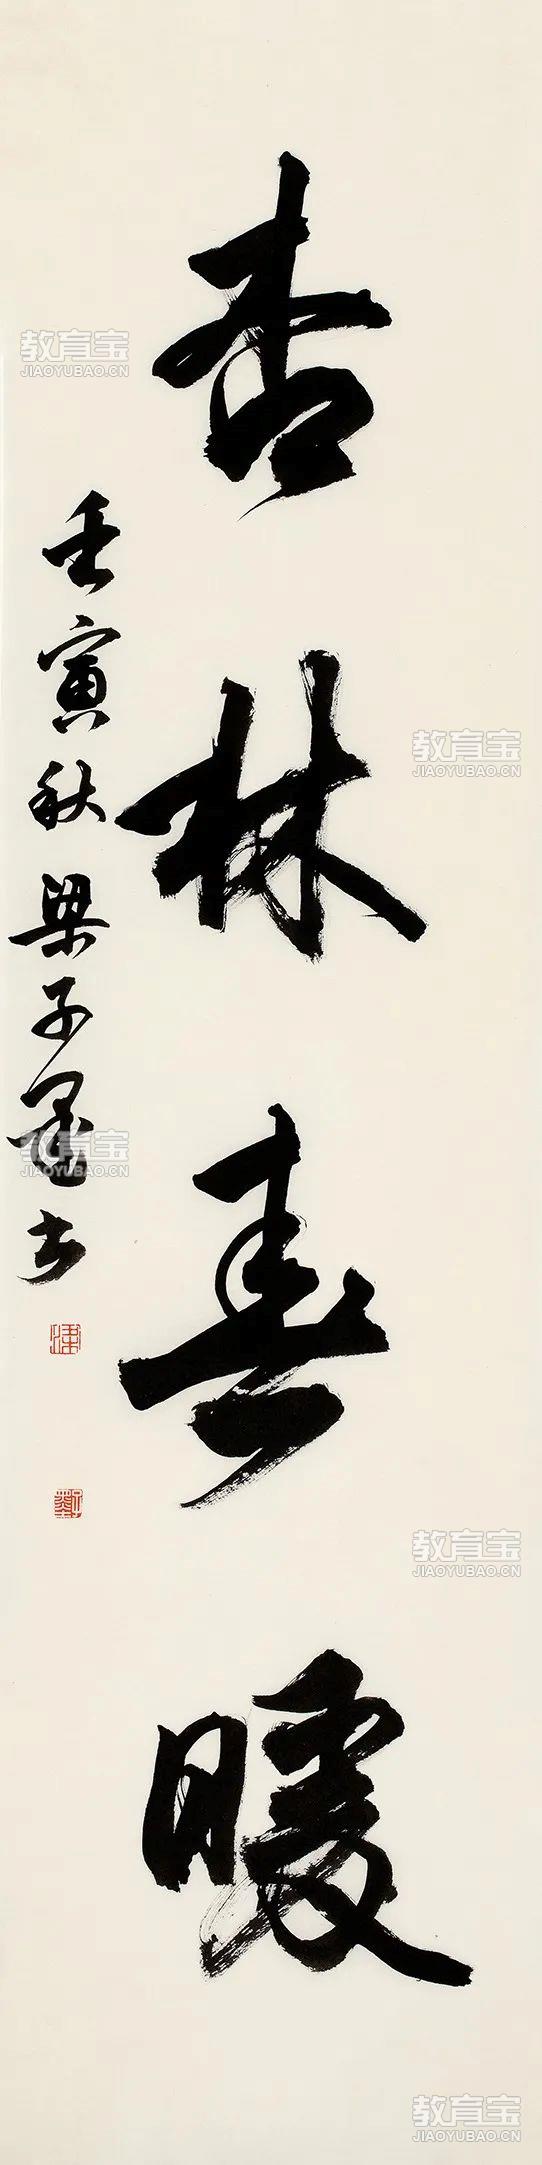 杏林春暖
壬寅秋梁子墨书
教育宝
JIAOYUBAO.CN
教育宝
JIAOYUBAO.CN
教育宝
JIAOYUBAO.CN
教育宝
JIAOYUBAO.CN
教育宝
JIAOYUBAO.CN